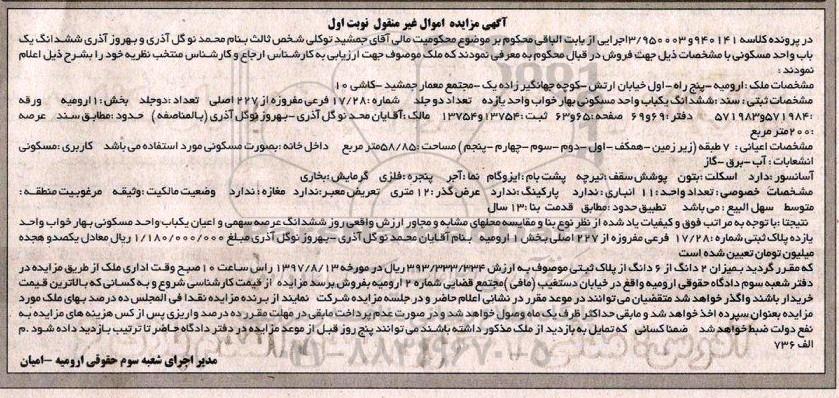 آگهی مزایده اموال غیر منقول نوبت اول
در پرونده کلاسه ۹۴۰۱۴۱و ۳/۹۵۰۰۰۳اجرایی از بابت الباقی محکوم بر موضوع محکومیت مالی آقای جمشید توکلی شخص ثالث بنام محمد نو گل آذری و بهروز آذری ششدانگ یک
باب واحد مسکونی با مشخصات ذیل جهت فروش در قبال محکوم به معرفی نمودند که ملک موصوف جهت ارزیابی به کارشناس ارجاع و کارشناس منتخب نظریه خود را بشرح ذیل اعلام
نمودند :
مشخصات ملک : ارومیه -پنج راه -اول خیابان ارتش -کوچه جهانگیر زاده یک -مجتمع معمار جمشید -کاشی ۱۰
مشخصات ثبتی : سند :ششدانگ یکباب واحد مسکونی بهار خواب واحد یازده تعداد دو جلد شماره :۱۷/۲۸ فرعی مفروزه از ۲۲۷ اصلی تعداد :دوجلد بخش :۱ارومیه ورقه
:۵۷۱۹۸۴و۵۷۱۹۸۳ دفتر :۶۹و۶۹ صفحه :۶۵و۶۳ ثبت :۱۳۷۵۴و۱۳۷۵۴ مالک :آقایان محمد نو گل آذری -بهروز نوگل آذری (بالمناصفه) حدود :مطابق سند عرصه
:۲۰۰متر مربع
مشخصات اعیانی : ۷ طبقه (زیر زمین - همکف -اول -دوم -سوم -چهارم -پنجم) مساحت :۵۸/۸۵متر مربع داخل خانه :بصورت مسکونی مورد استفاده می باشد کاربری :مسکونی
انشعابات : آب -برق -گاز
آسانسور :دارد اسکلت :بتون پوشش سقف :تیرچه پشت بام : ایزوگام نما :آجر پنجره :فلزی گرمایش :بخاری
مشخصات خصوصی : تعداد واحد :۱۱ انباری :ندارد پارکینگ :ندارد عرض گذر :۱۲ متری تعریض معبر :ندارد مغازه :ندارد وضعیت مالکیت :وثیقه مرغوبیت منطقه :
متوسط سهل البیع : می باشد تطبیق حدود :مطابق قدمت بنا :۱۳ سال
نتیجتا : با توجه به مراتب فوق و کیفیات یاد شده از نظر نوع بنا و مقایسه محلهای مشابه و مجاور ارزش واقعی روز ششدانگ عرصه سهمی و اعیان یکباب واحد مسکونی بهار خواب واحد
یازده پلاک ثبتی شماره :۱۷/۲۸ فرعی مفروزه از ۲۲۷ اصلی بخش ۱ ارومیه بنام آقایان محمد نو گل آذری -بهروز نوگل آذری مبلغ ۱/۱۸۰/۰۰۰/۰۰۰ ریال معادل یکصدو هجده
میلیون تومان تعیین شده است
که مقرر گردید بمیزان ۲ دانگ از ۶ دانگ از پلاک ثبتی موصوف به ارزش ۳۹۳/۳۳۳/۳۳۴ ریال در مورخه ۱۳۹۷/۸/۱۳ راس ساعت ۱۰صبح وقت اداری ملک از طریق مزایده در
دفتر شعبه سوم دادگاه حقوقی ارومیه واقع در خیابان دستغیب (مافی) مجتمع قضایی شماره ۲ ارومیه بفروش برسد مزایده از قیمت کارشناسی شروع و به کسانی که بالاترین قیمت
خریدار باشند واگذار خواهد شد متقضیان می توانند در موعد مقرر در نشانی اعلام حاضر و در جلسه مزایده شرکت نمایند از برنده مزایده نقدا فی المجلس ده درصد بهای ملک مورد
مزایده بعنوان سپرده اخذ خواهد شد و مابقی حداکثر ظرف یک ماه وصول خواهد شد و در صورت عدم پرداخت مابقی در مهلت مقرر ده درصد واریزی پس از کس هزینه های مزایده به
نفع دولت ضبط خواهد شد ضمنا کسانی که تمایل به بازدید از ملک مذکور داشته باشند می توانند پنج روز قبل از موعد مزایده در دفتر دادگاه حاضر تا ترتیب بازدید داده شود .م
الف ۷۳۶
مدیر اجرای شعبه سوم حقوقی ارومیه -امیان